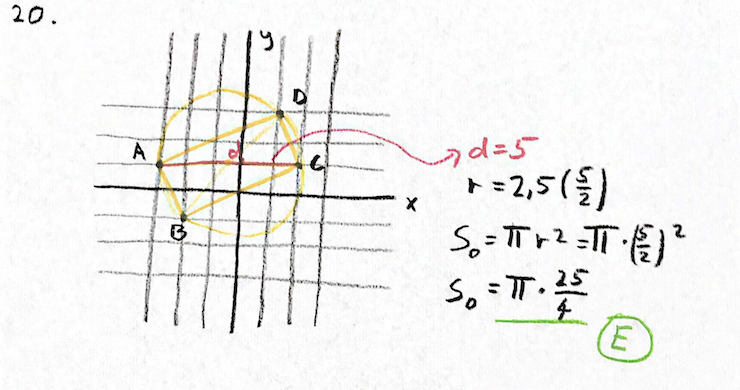 20.
y
D
A
d
C
x
B
d=5
r = 2,5 (5/2)
S₀ = π r 2 = π · (5/2)²
S₀ = π · 25/4
E